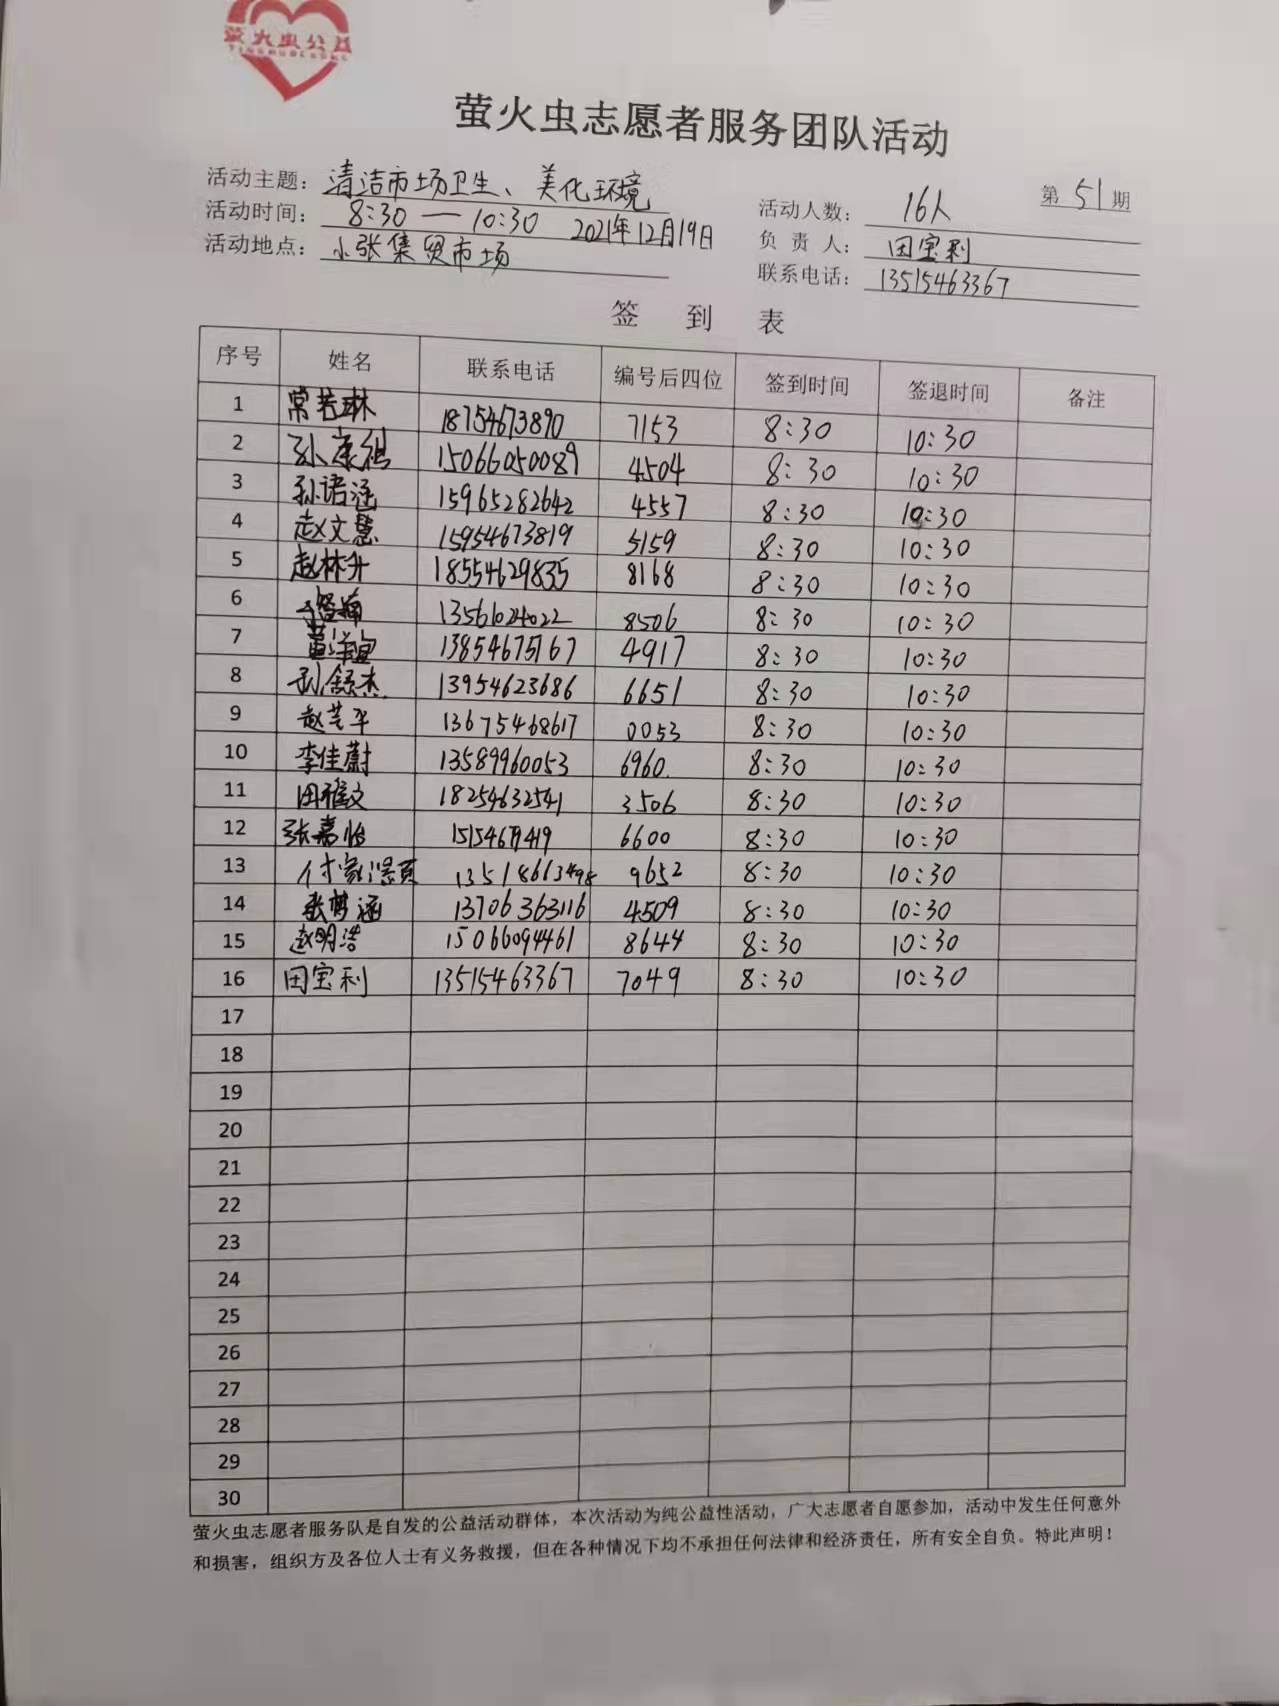 萤火虫公益
萤火虫志愿者服务团队活动
第 51 期
活动主题：清洁市场卫生、美化环境
活动人数：16人
活动时间：8:30 — 10:30 2021年12月19日
负 责 人：田宝利
活动地点：小张集贸市场
联系电话：13515463367
签 到 表
序号 姓名 联系电话 编号后四位 签到时间 签退时间 备注
1 常若琳 18754673890 7153 8:30 10:30
2 孙康祺 15066050089 4504 8:30 10:30
3 孙语涵 15965282642 4557 8:30 10:30
4 赵文慧 15954673819 5159 8:30 10:30
5 赵林升 18554629835 8168 8:30 10:30
6 13561024022 8506 8:30 10:30
7 13854675167 4917 8:30 10:30
8 孙舒杰 13954623686 6651 8:30 10:30
9 赵芸平 13675468617 0053 8:30 10:30
10 李佳蔚 13589960053 6960 8:30 10:30
11 田雅文 18254632541 3506 8:30 10:30
12 张嘉怡 6600 8:30 10:30
13 13518663498 9652 8:30 10:30
14 张梦涵 13706363116 4509 8:30 10:30
15 赵明浩 15066094461 8644 8:30 10:30
16 田宝利 13515463367 7049 8:30 10:30
17
18
19
20
21
22
23
24
25
26
27
28
29
30
萤火虫志愿者服务队是自发的公益活动群体，本次活动为纯公益性活动，广大志愿者自愿参加，活动中发生任何意外
和损害，组织方及各位人士有义务救援，但在各种情况下均不承担任何法律和经济责任，所有安全自负。特此声明！